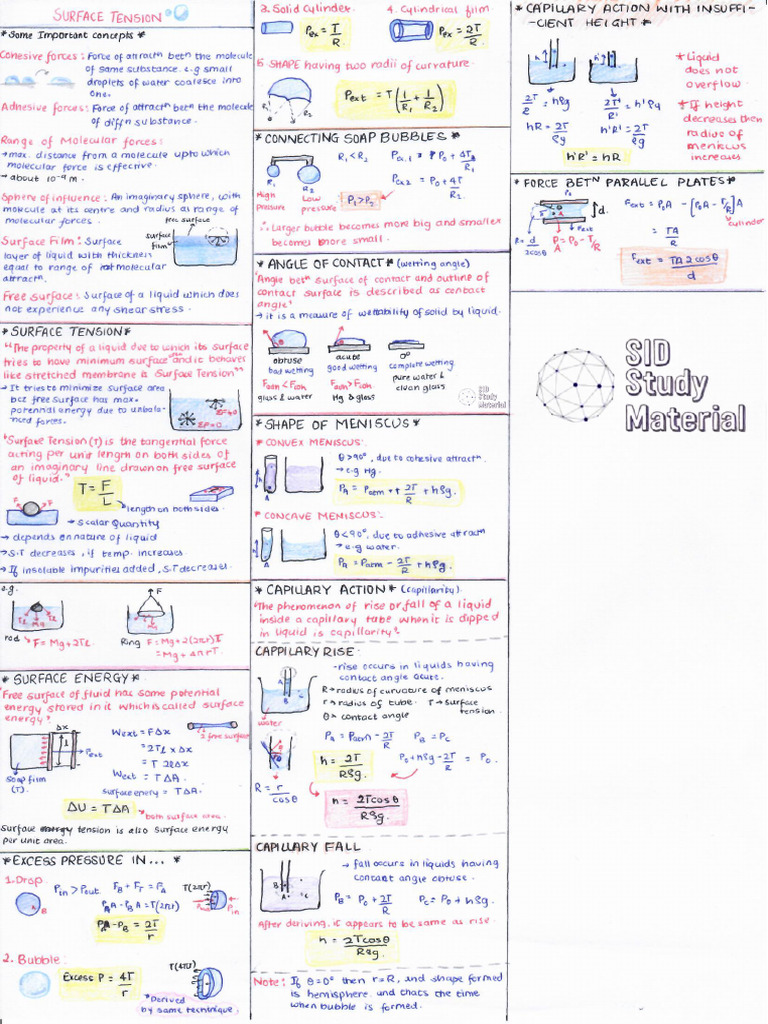 SURFACE TENSION
*Some Important concepts*
Cohesive forces: Force of attractn betn the molecule
of same substance. e.g small
droplets of water coalesce into
one.
Adhesive forces: Force of attractn betn the molecule
of diffn substance.
Range of Molecular forces:
→ max. distance from a molecule upto which
molecular force is effective.
→ about 10⁻⁹ m.
Sphere of influence: An imaginary sphere, with
molecule at its centre and radius as range of
molecular forces.
free surface
Surface Film: Surface
layer of liquid with thickness
equal to range of molecular
attractn.
surface
film
Free surface: Surface of a liquid which does
not experience any shear stress.
*SURFACE TENSION*
"The property of a liquid due to which its surface
tries to have minimum surface and it behaves
like stretched membrane is Surface Tension"
→ It tries to minimize surface area
but free surface has max.
potential energy due to unbala-
nced forces.
ΣF≠0
ΣF=0
"Surface Tension(T) is the tangential force
acting per unit length on both sides of
an imaginary line drawn on free surface
of liquid."
T = F/L
length on both sides.
F F
→ Scalar Quantity
→ depends on nature of liquid
→ S.T decreases, if temp. increases
→ If insoluble impurities added, S.T decreases.
e.g.
Tl Mg Tl
rod → F = Mg + 2Tl
F
Mg
Ring F = Mg + 2(2πr)T
= Mg + 4πrT
*SURFACE ENERGY*
"Free surface of fluid has some potential
energy stored in it which is called surface
energy"
Δx
l
Pext
Soap film
(T).
2 free surface
Wext = FΔx
= 2Tl × Δx
= T 2lΔx
Wext = TΔA.
surface energy = TΔA.
ΔU = TΔA
both surface area.
Surface tension is also surface energy
per unit area.
*EXCESS PRESSURE IN... *
1. Drop
B
Pin > Pout. FB + FT = FA
PAA - PBA = T(2πr)
PA - PB = 2T/r
T(2πr)
Pin
2. Bubble:
Excess P = 4T/r
T(4πr)
*Derived
by same technique.
3. Solid Cylinder.
Pex = T/R
4. Cylindrical film
Pex = 2T/R
5. SHAPE having two radii of curvature.
R1 R2
Pext = T(1/R1 + 1/R2)
*CONNECTING SOAP BUBBLES *
R1 R2
High
pressure
Low
pressure
R1 < R2
Pex.1 = P0 + 4T/R1
Pex2 = P0 + 4T/R2.
P1 > P2
∴ Larger bubble becomes more big and smaller
becomes more small.
*ANGLE OF CONTACT* (wetting angle)
"Angle betn surface of contact and outline of
contact surface is described as contact
angle"
→ it is a measure of wettability of solid by liquid.
obtuse
bad wetting
Fadh < Fcoh
glass & water
acute
good wetting
Fadh > Fcoh
Hg & glass
0°
complete wetting
pure water &
clean glass
SID
Study
Material
*SHAPE OF MENISCUS*
* CONVEX MENISCUS:
h
A
θ > 90°, due to cohesive attractn.
→ e.g Hg.
PA = Patm + 2T/R + hρg.
* CONCAVE MENISCUS:
h
A
θ < 90°, due to adhesive attractn
→ e.g water.
PA = Patm - 2T/R + hρg.
*CAPILLARY ACTION* (capillarity)
"The phenomenon of rise or fall of a liquid
inside a capillary tube when it is dipped
in liquid is capillarity".
CAPPILARY RISE
-rise occurs in liquids having
contact angle acute.
R → radius of curvature of meniscus
r → radius of tube. T → surface
tension.
θ = contact angle
A B C
water
PA = Patm - 2T/R PB = PC
h = 2T/Rρg.
P0 + hρg - 2T/R = P0.
R = r/cosθ
h = 2Tcosθ/Rρg.
CAPPILARY FALL
B A C
→ fall occurs in liquids having
contact angle obtuse.
PB = P0 + 2T/R PC = P0 + hρg.
After deriving, it appears to be same as rise.
h = 2Tcosθ/Rρg.
Note: If θ=0° then r=R, and shape formed
is hemisphere and thats the time
when bubble is formed.
*CAPILLARY ACTION WITH INSUFFI-
-CIENT HEIGHT*
h h'
2T/R = hρg
hR = 2T/ρg
2T/R' = h'ρg
h'R' = 2T/ρg
h'R' = hR
*Liquid
does not
overflow.
*If height
decreases then
radius of
meniscus
increases
*FORCE BETn PARALLEL PLATES*
P0
d.
B A
Pext
R = d/2cosθ
P = P0 - T/R
A
Fext = P0A - [P0 - T/R]A
cylinder
= TA/R
Fext = TA2cosθ/d
SID
Study
Material